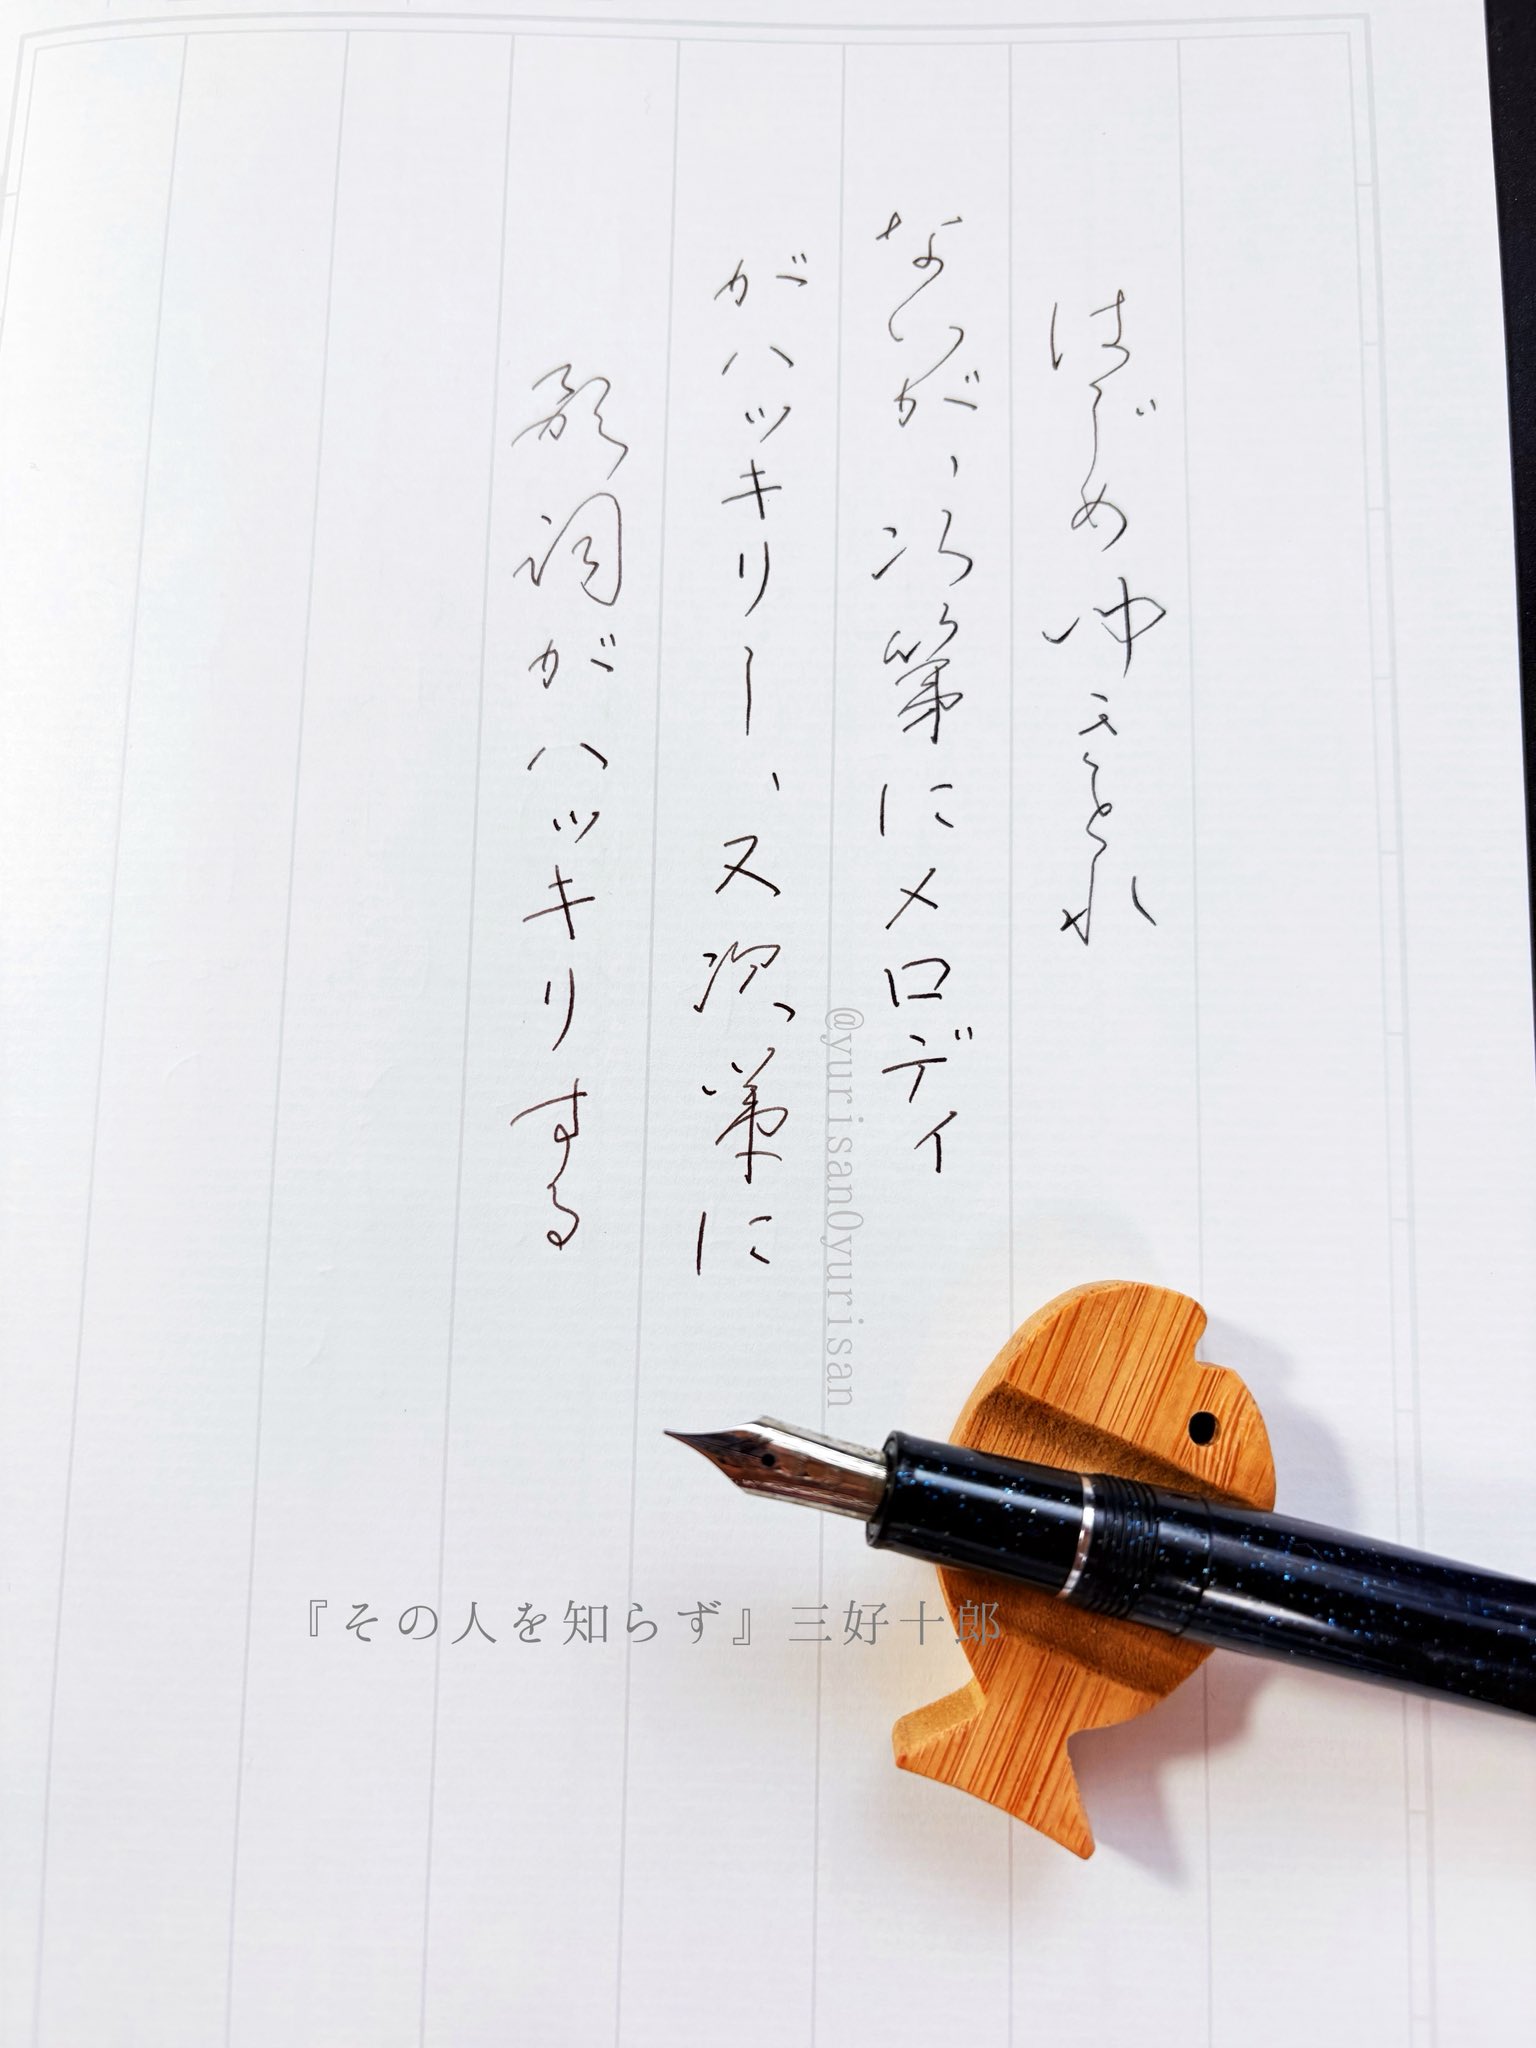 はじめ仲々きとれ
ないが、次第にメロディ
がハッキリし、又次第に
歌詞がハッキリする
@yurisan0yurisan
『その人を知らず』三好十郎